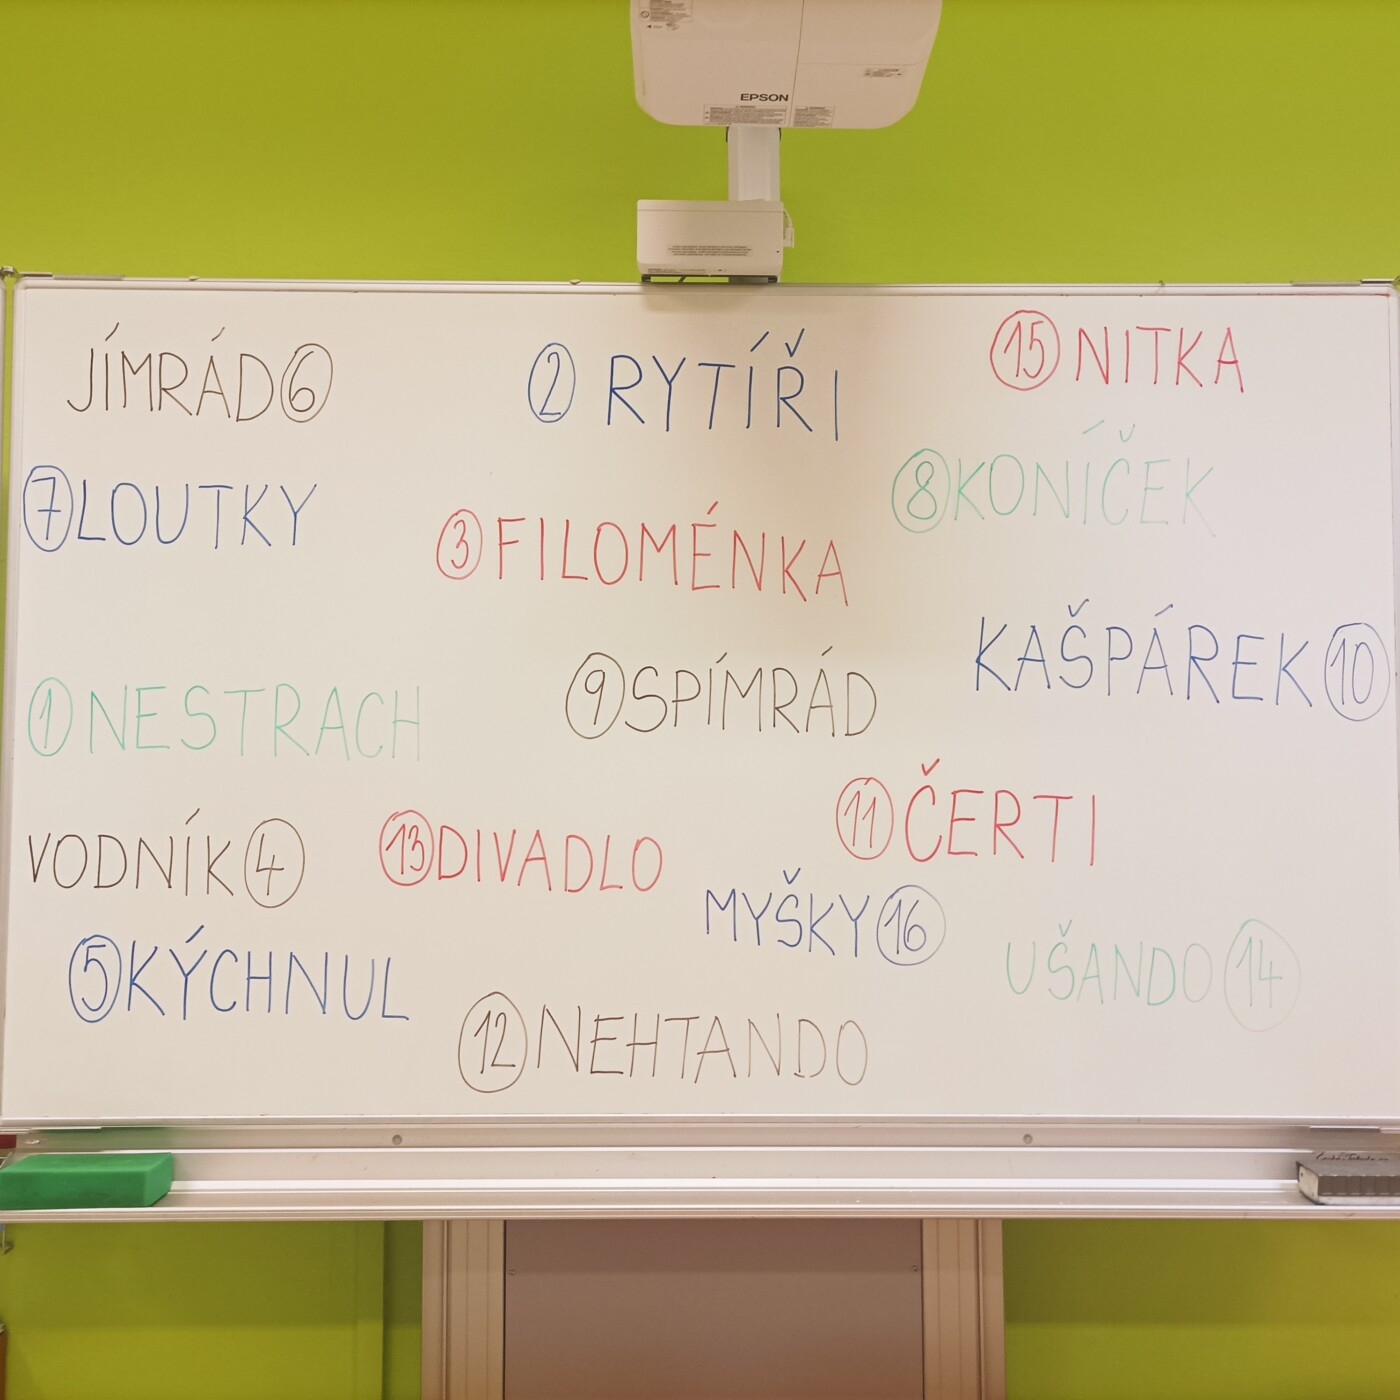 EPSON
JÍMRÁD 6
2 RYTÍŘI
15 NITKA
7 LOUTKY
8 KONÍČEK
3 FILOMÉNKA
KAŠPÁREK 10
1 NESTRACH
9 SPÍMRÁD
11 ČERTI
VODNÍK 4
13 DIVADLO
MYŠKY 16
5 KÝCHNUL
UŠANDO 14
12 NEHTANDO